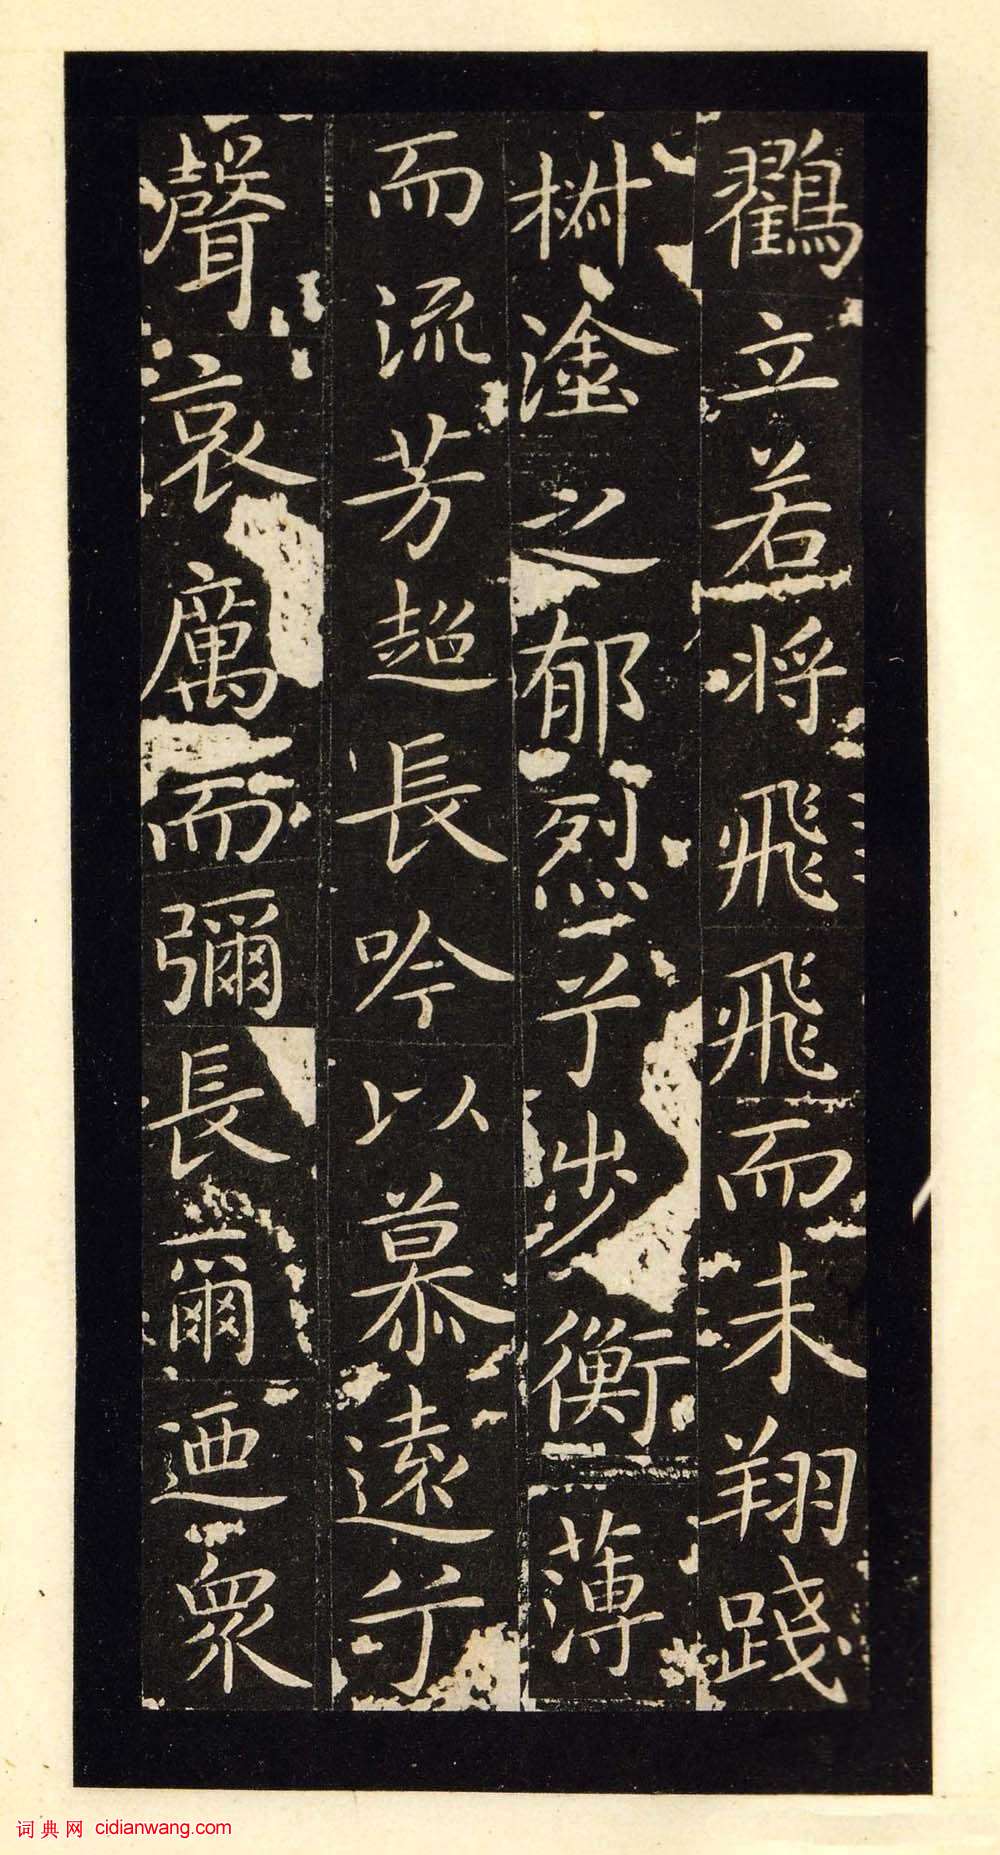 鶴立若將飛飛而未翔踐
椒塗之郁烈兮步衡薄
而流芳超長吟以慕遠兮
聲哀厲而彌長爾迺眾
词典网 cidianwang.com